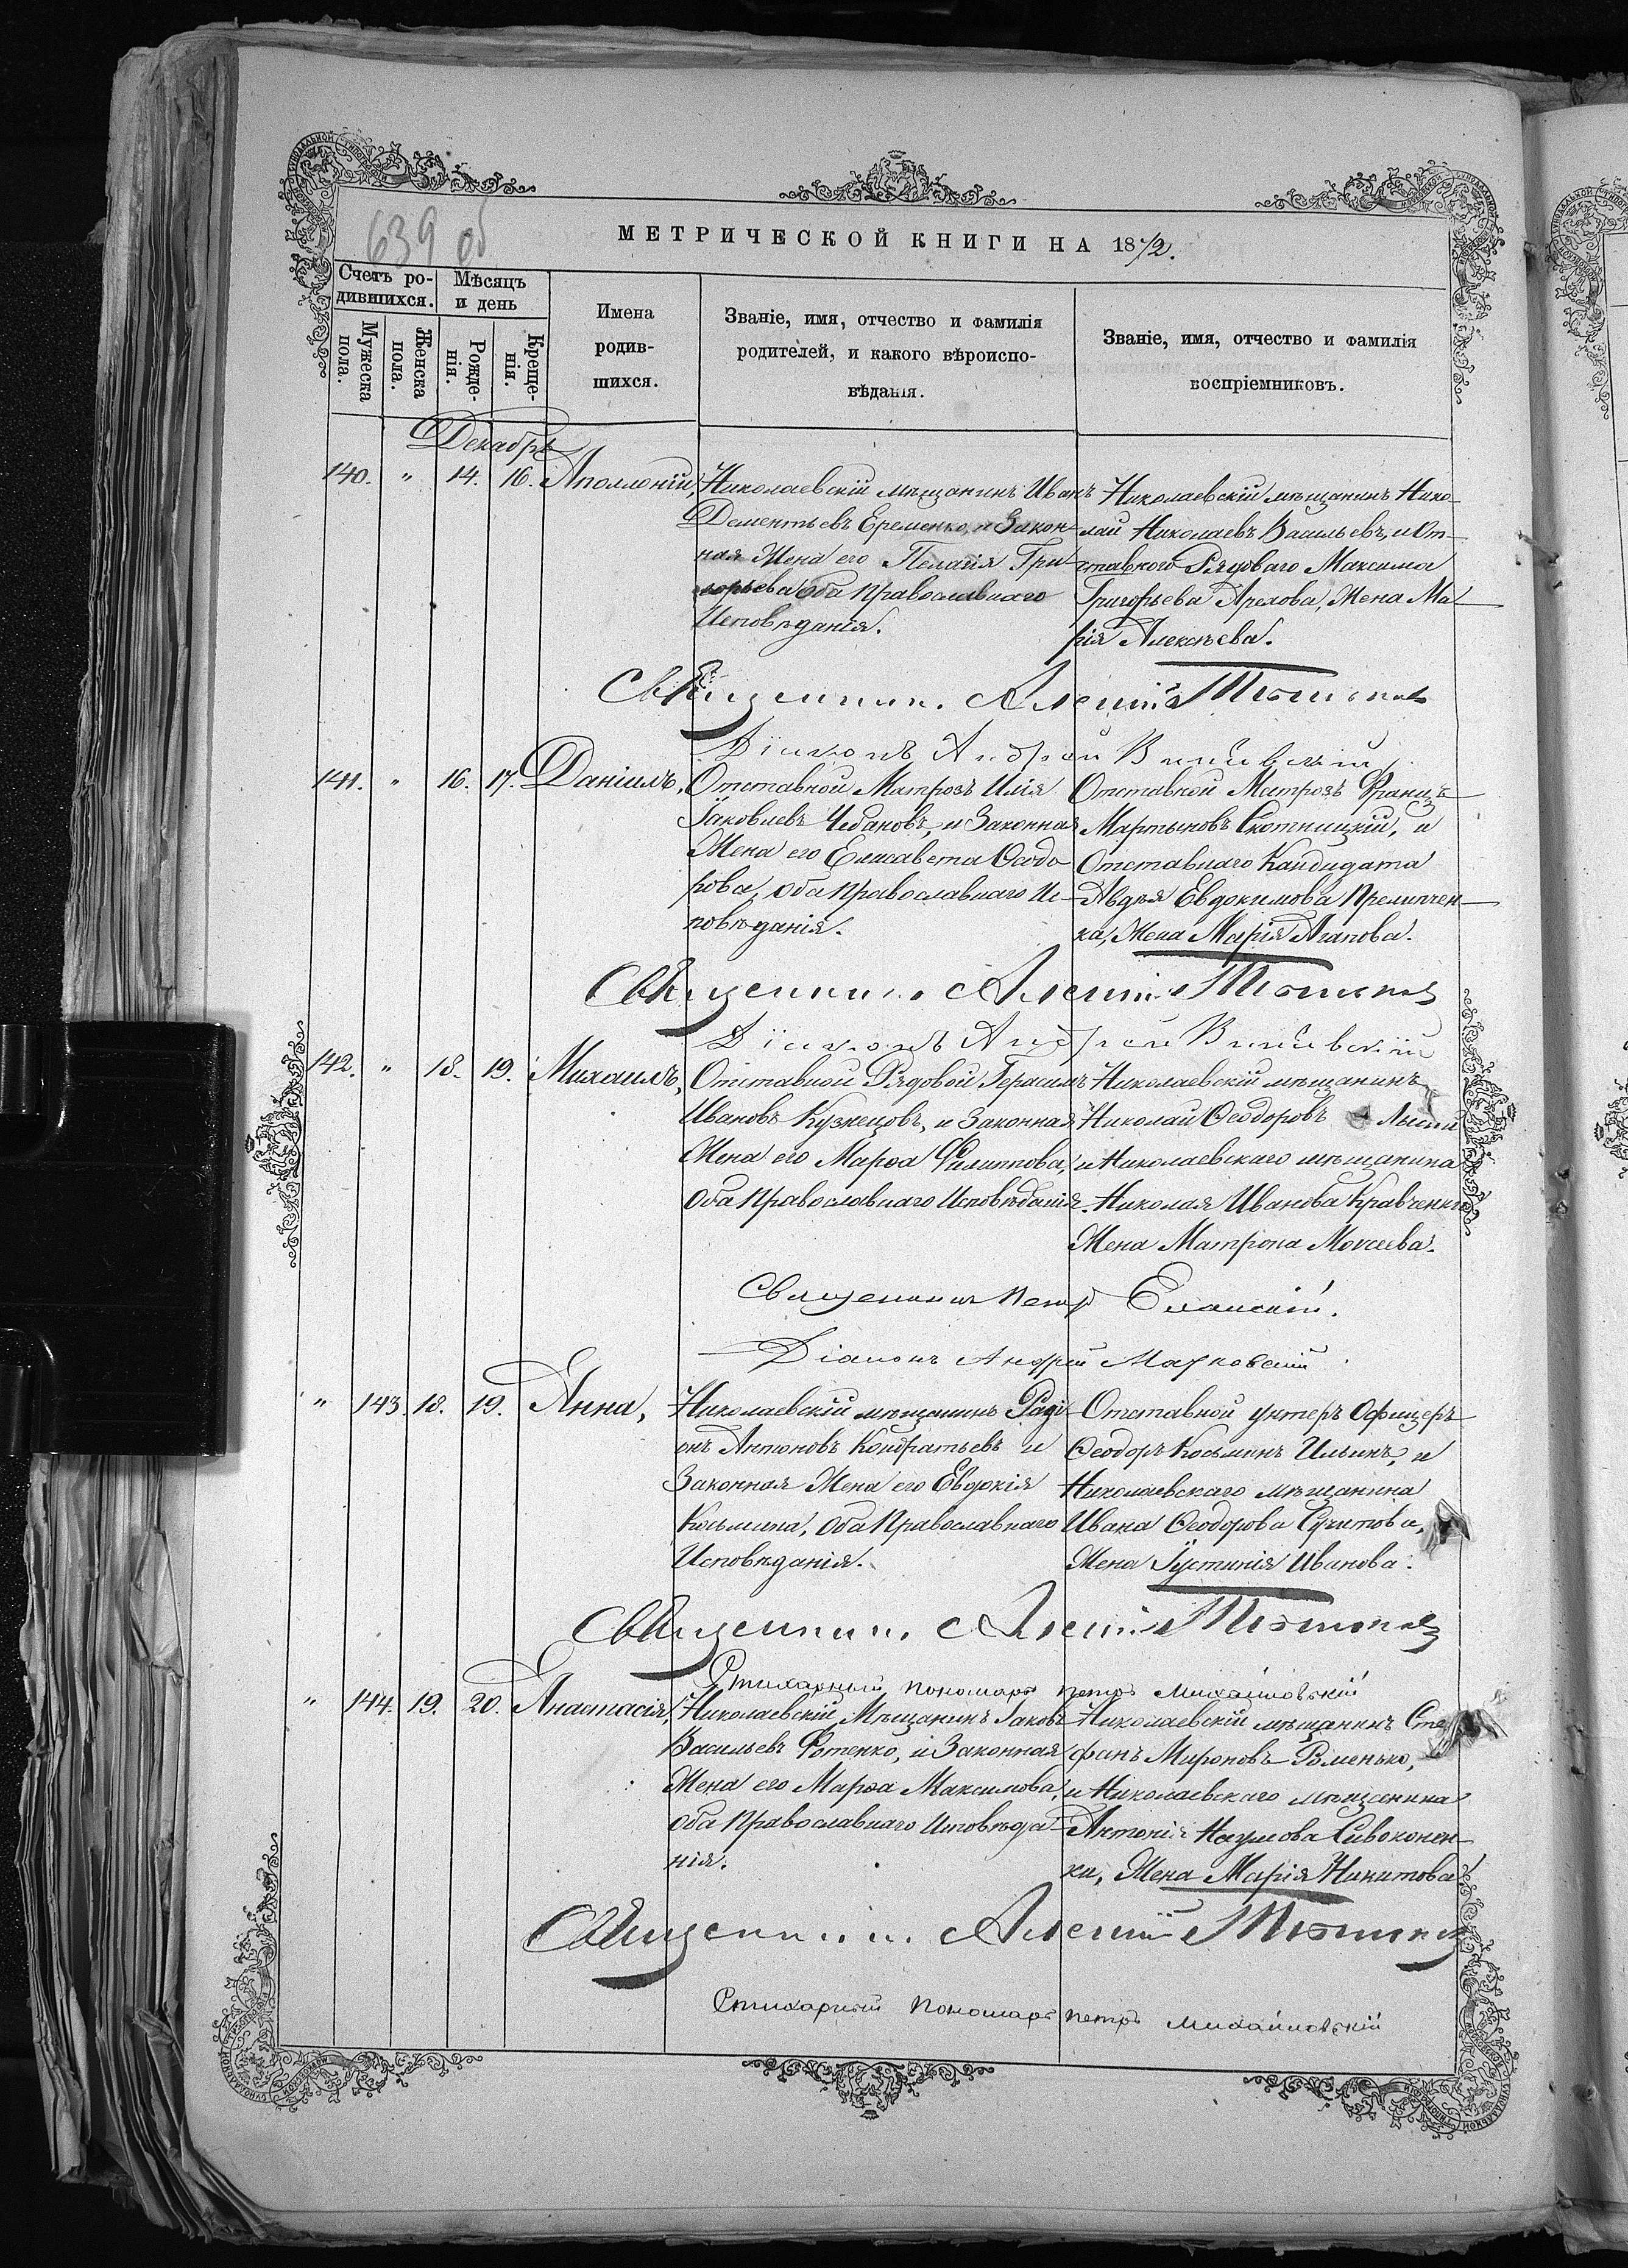 639 об
МЕТРИЧЕСКОЙ КНИГИ НА 1872.
Счетъ ро-
дившихся.
Мѣсяцъ
и день
Мужеска
пола.
Женска
пола.
Рожде-
нія.
Креще-
нія.
Имена
родив-
шихся.
Званіе, имя, отчество и фамилія
родителей, и какого вѣроиспо-
вѣданія.
Званіе, имя, отчество и фамилія
воспріемниковъ.
Декабрь
140. " 14. 16. Аполлоній,
Николаевскій мѣщанинъ Иванъ
Дементьевъ Еременко, и Закон-
ная Жена его Пелагія Гри-
горьева оба православнаго
Исповѣданія.
Николаевскій мѣщанинъ Нико-
лай Николаевъ Васильевъ, и От-
ставного Рядоваго Максима
Григорьева Арехова, Жена Ма-
рія Алексѣева.
Священникъ Алексій
Діаконъ Андрей
141. " 16. 17. Даніилъ,
Отставной Матрозъ Илія
Іаковлевъ Чебановъ, и Законная
Жена его Елисавета Ѳеодо-
рова, оба православнаго Ис-
повѣданія.
Отставной Матрозъ Францъ
Мартыновъ Скотницкій, и
Отставнаго Кандидата
Авдѣя Евдокимова
ка, Жена Марія Агапова.
Священникъ Алексій
Діаконъ Андрей
142. " 18. 19. Михаилъ,
Отставной Рядовой Герасимъ
Ивановъ Кузнецовъ, и Законная
Жена его Марѳа Филиппова,
Оба православнаго Исповѣданія.
Николаевскій мѣщанинъ
Николай Ѳеодоровъ Лысый
и Николаевскаго мѣщанина
Николая Иванова Кравченка
Жена Матрона Моѵсеева.
Священникъ Петръ Еланскій.
Діаконъ Андрей Марковскій
" 143. 18. 19. Анна,
Николаевскій мѣщанинъ Роді-
онъ Антоновъ Кондратьевъ и
Законная Жена его Евдокія
Косьмина, Оба Православнаго
Исповѣданія.
Отставной унтеръ Офицеръ
Ѳеодоръ Косьминъ Ильинъ, и
Николаевскаго мѣщанина
Ивана Ѳеодорова
Жена Іустинія Иванова.
Священникъ Алексій
Стихарный пономарь петръ Михайловскій
" 144. 19. 20. Анастасія,
Николаевскій Мѣщанинъ Іаковъ
Васильевъ Фотенко, и Законная
Жена его Марѳа Максимова,
оба Православнаго Исповѣда-
нія.
Николаевскій мѣщанинъ Сте-
фанъ Мироновъ Роменько,
и Николаевскаго мѣщанина
Антонія Наумова Сивоконен-
ка, Жена Марія Никитова.
Священникъ Алексій
Стихарный пономарь петръ Михайловскій